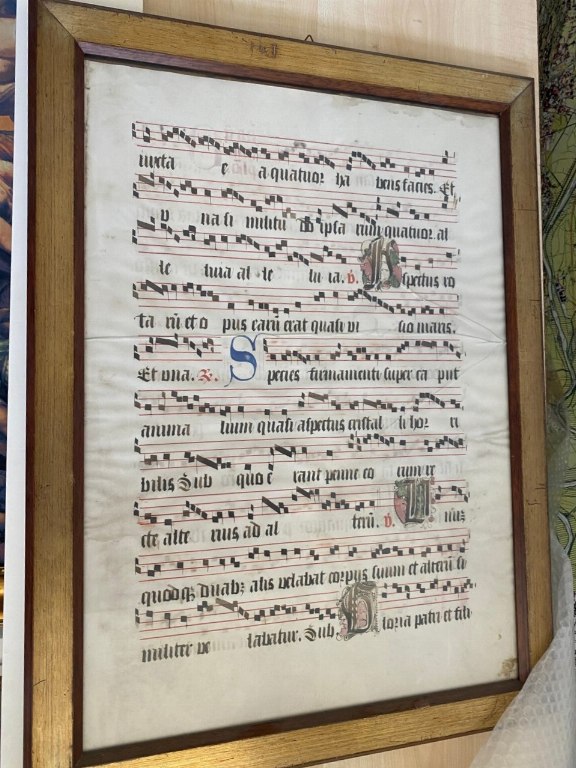 iuxta e a quatuor ha bens facies. Et
v na si militu do ipsa rum quatuor. al
le luia al le lu ia. v. Aspectus ro
ta rū et o pus earū erat quasi vi sio maris.
Et vna. R. Species firmamenti super ca put
anima lium quasi aspectus cristal li hor ri
bilis Sub quo e rant penne eo rum re
cte alte rius ad al terū. v. Vnū
quodqꝫ duabꝫ alis velabat corpus suum et alterū si
militer ve labatur. Sub Gloria patri et fili